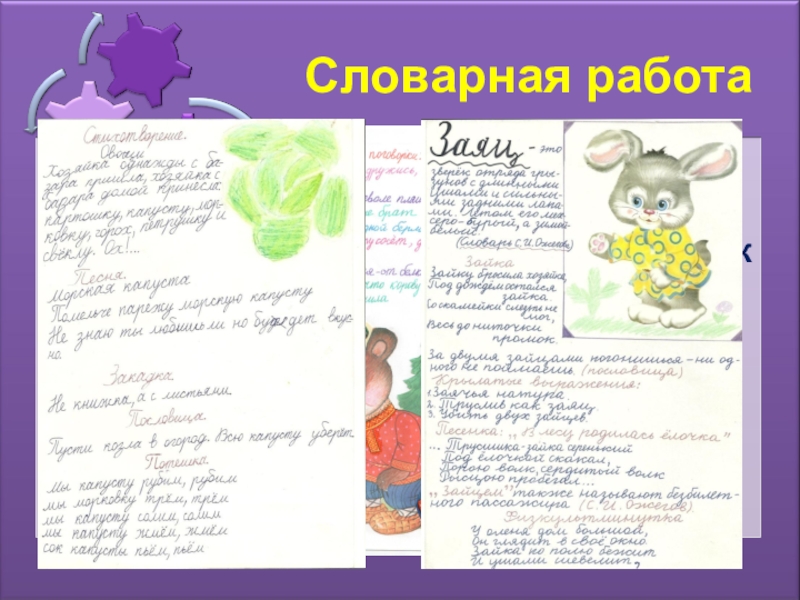 Словарная работа
Стихотворение.
Овощи
Хозяйка однажды с ба-
зара пришла, хозяйка с
базара домой принесла:
картошку, капусту, мор-
ковку, горох, петрушку и
свёклу. Ох!...
Песня.
Морская капуста
Помельче порежу морскую капусту
Не знаю ты любишь ли но будет вкус-
но.
Закадка
Не книжка, а с листьями
Пословица
Пусти козла в огород. Всю капусту уберёт.
Потешка.
Мы капусту рубим, рубим
мы морковку трём, трём
мы капусту солим, солим
мы капусту жмём, жмём
сок капусты пьём, пьём
поговорки.
дружись,
брат
Заяц - это
зверёк отряда гры-
зунов с длинными
ушами и сильны-
ми задними лапа-
ми. Летом его мех
серо-бурый, а зимой
белый.
(Словарь С.И. Ожегова)
Зайка
Зайку бросила хозяйка,
Под дождём остался
зайка.
Со скамейки слезть не
мог,
Весь до ниточки
промок.
За двумя зайцами погонишься - ни од-
ного не поймаешь. (пословица)
Крылатые выражения:
1. Заячья натура.
2. Труслив как заяц.
3. Убить двух зайцев.
Песенка: „В лесу родилась ёлочка"
... Трусишка-зайка серенький
Под ёлочкой скакал,
Порою волк, сердитый волк
Рысцою пробегал...
„Зайцем" также называют безбилет-
ного пассажира (С.И. Ожегов).
Физкультминутка
У оленя дом большой,
Он глядит в своё окно.
Зайка по полю бежит
И ушами шевелит,
к